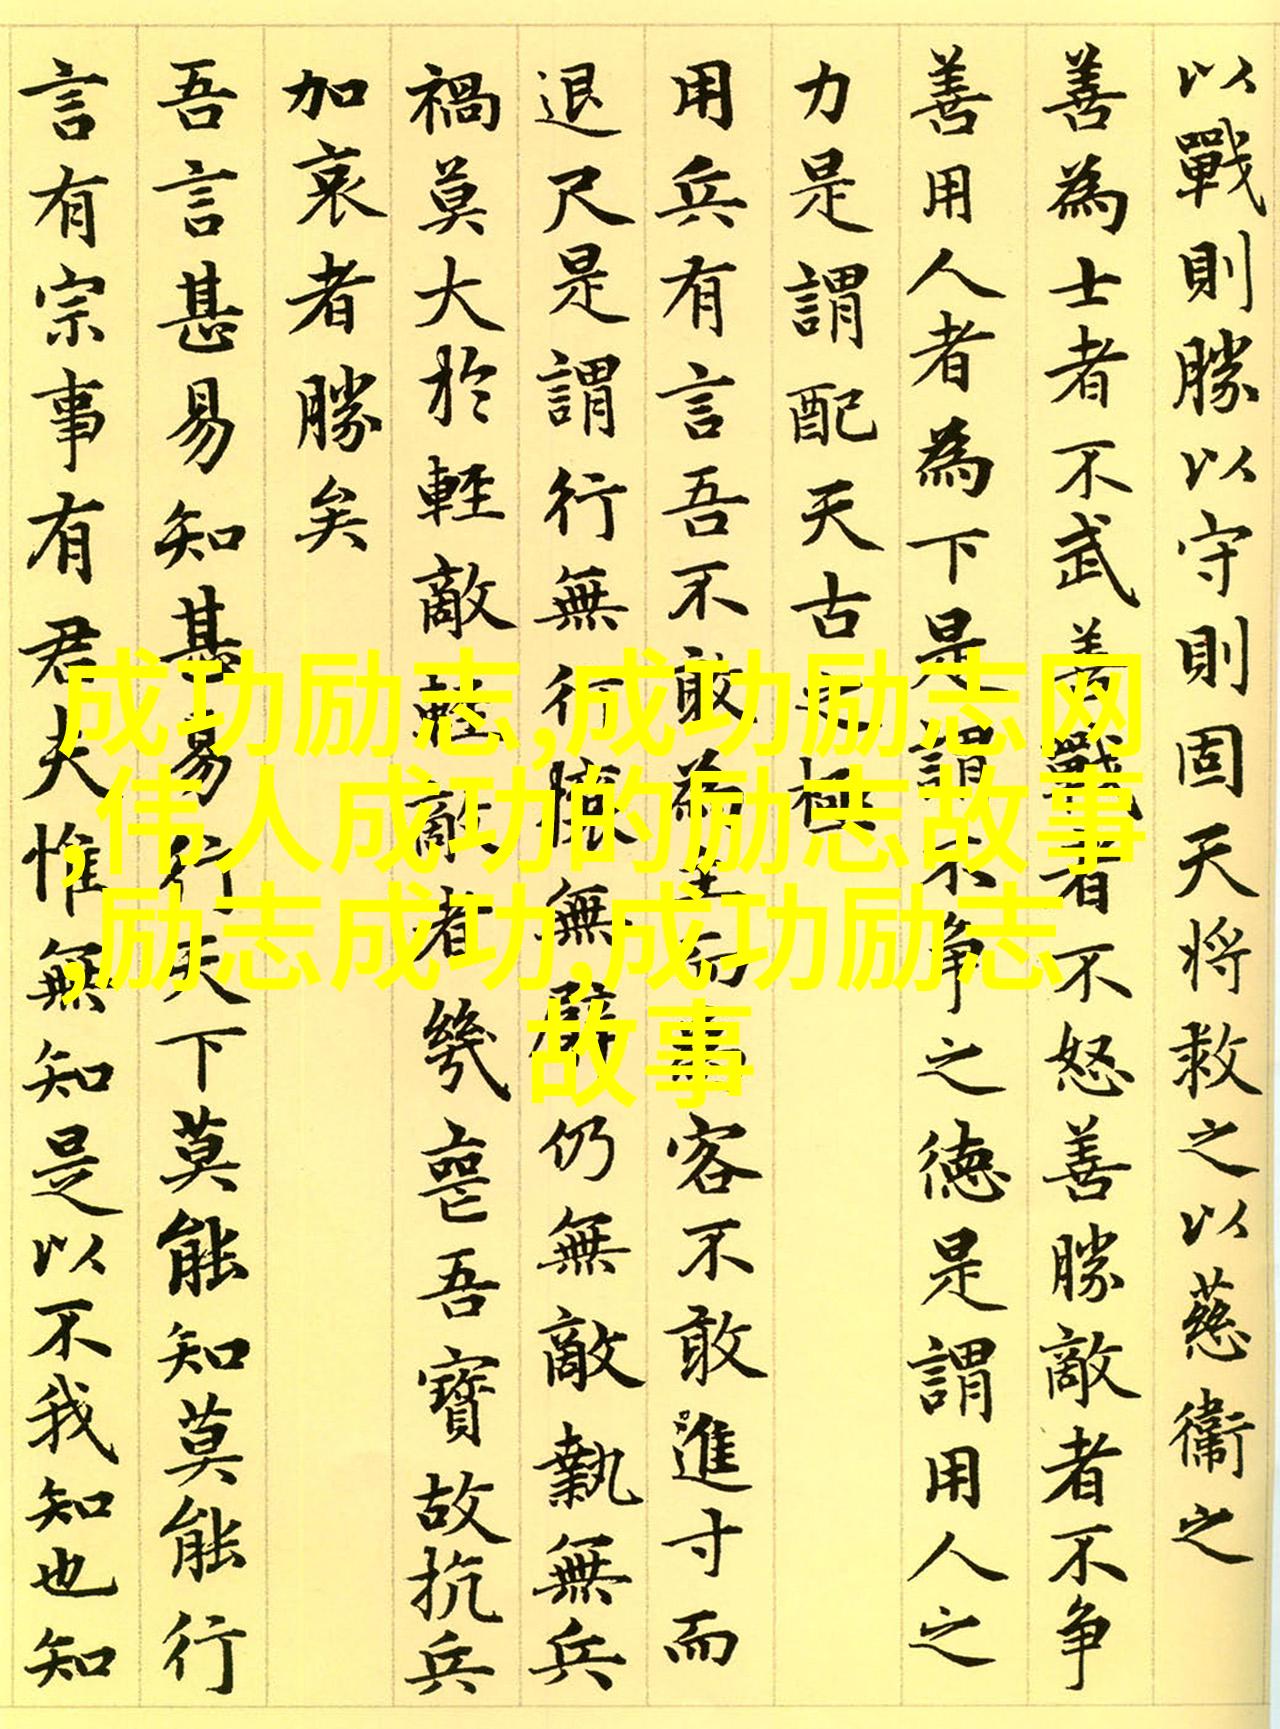 以戰則勝以守則固天將救之以慈衞之
善為士者不武善戰者不怒善勝敵者不争
善用人者為下是謂不争之德是謂用人之
力是謂配天古之極
用兵有言吾不敢為主而為客不敢進寸而
退尺是謂行無行攘無臂仍無敵執無兵
禍莫大於輕敵輕敵者幾喪吾寶故抗兵
加哀者勝矣
吾言甚易知甚易行天下莫能知莫能行
言有宗事有君夫惟無知是以不我知也知
成功励志,成功励志网
,伟人成功的励志故事
,励志成功,成功励志
故事